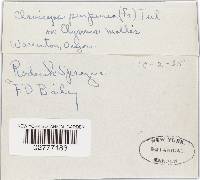 Claviceps purpurea (Fr.) Tul
on Elymus mollis
Warrenton, Oregon
Roderick Sprague
F D Bailey
02777189
NEW YORK
BOTANICAL
GARDEN